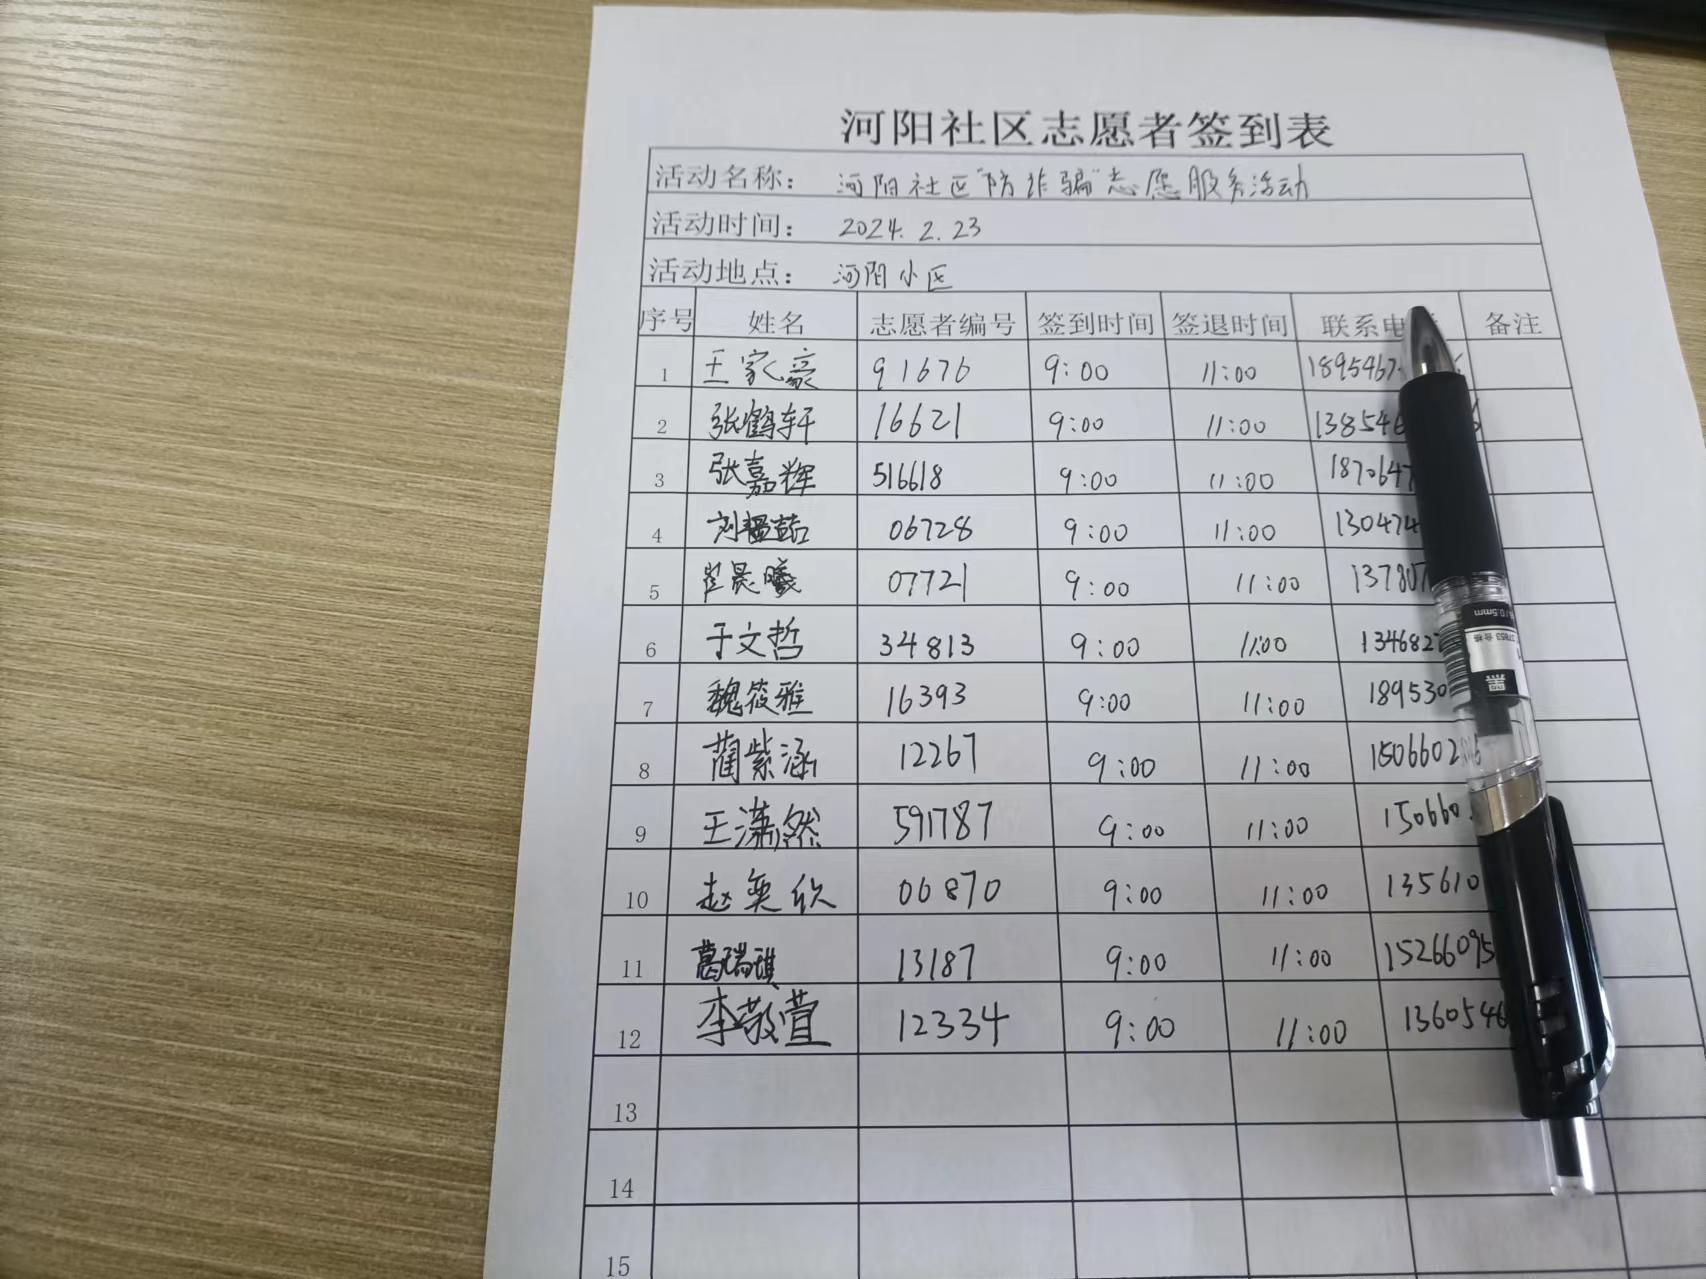 河阳社区志愿者签到表
活动名称： 河阳社区"防诈骗"志愿服务活动
活动时间： 2024.2.23
活动地点： 河阳小区
序号 姓名 志愿者编号 签到时间 签退时间 联系电 备注
1 王家豪 91676 9:00 11:00 1895467
2 张鹤轩 16621 9:00 11:00 138546
3 张嘉辉 516618 9:00 11:00 1870647
4 刘 喆 06728 9:00 11:00 130474
5 崔晨曦 07721 9:00 11:00 137807
6 于文哲 34813 9:00 11:00 1346827
7 魏筱雅 16393 9:00 11:00 189530
8 蔺紫涵 12267 9:00 11:00 1506602
9 王潇然 591787 9:00 11:00 150660
10 赵奕欣 06870 9:00 11:00 135610
11 葛瑞琪 13187 9:00 11:00 15266095
12 李敬萱 12334 9:00 11:00 1360546
13
14
15
0.5mm